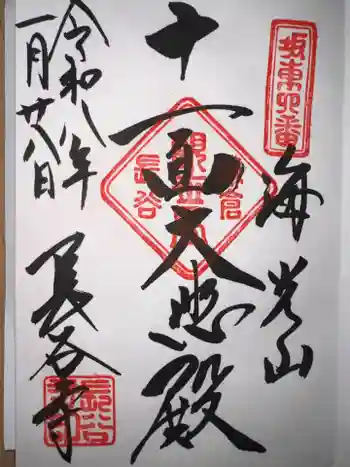 坂東四番
海光山
十一面大悲殿
長谷
令和八年
一月廿八日
長谷寺